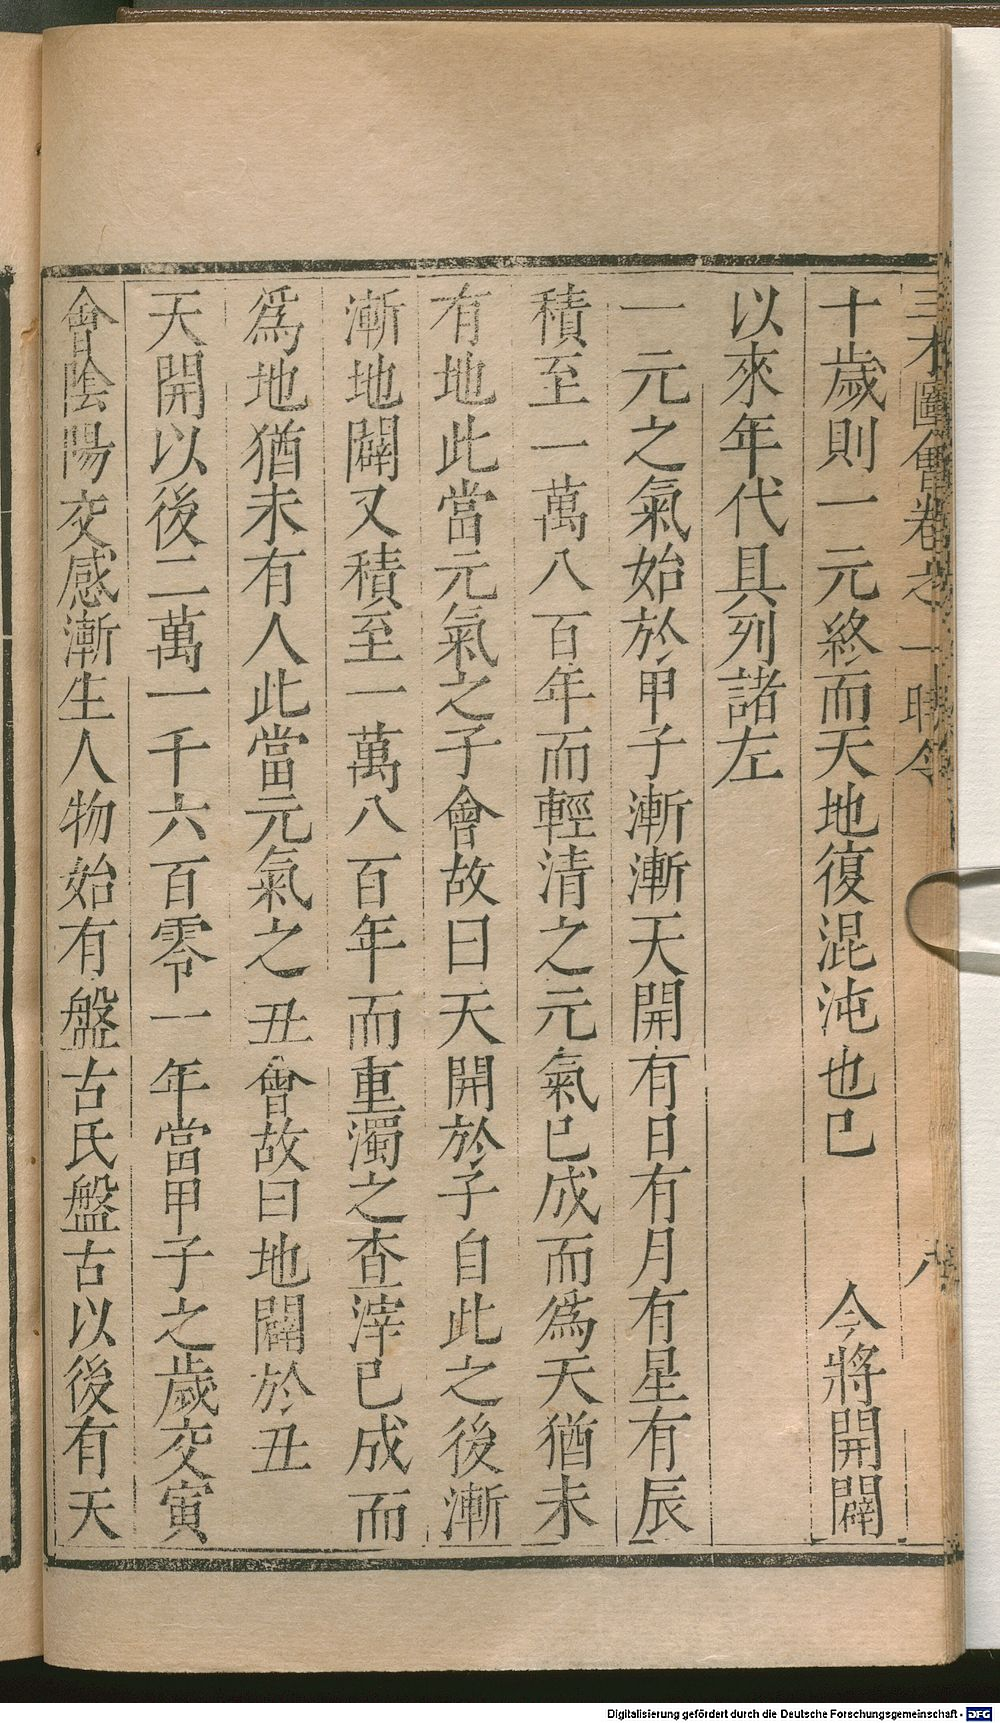 三才圖會卷之一時令 八
十歲則一元終而天地復混沌也已 今將開闢
以來年代具列諸左
一元之氣始於甲子漸漸天開有日有月有星有辰
積至一萬八百年而輕清之元氣已成而爲天猶未
有地此當元氣之子會故曰天開於子自此之後漸
漸地闢又積至一萬八百年而重濁之查滓已成而
爲地猶未有人此當元氣之丑會故曰地闢於丑
天開以後二萬一千六百零一年當甲子之歲交寅
會陰陽交感漸生人物始有盤古氏盤古以後有天
Digitalisierung gefördert durch die Deutsche Forschungsgemeinschaft - DFG